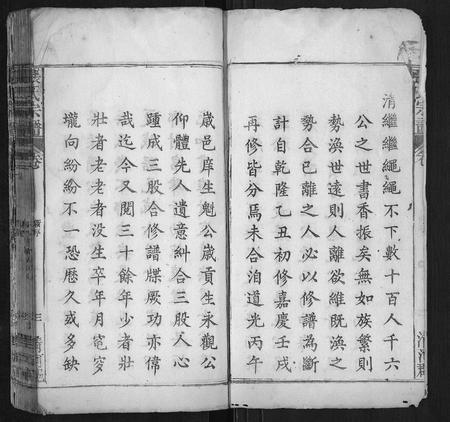 清繼繼繩繩不下數十百人千六
公之世書香振矣無如族繁則
勢渙世遠則人離欲維既渙之
勢合已離之人必以修譜為斷
計自乾隆乙丑初修嘉慶壬戌
再修皆分焉未合洎道光丙午
歲邑庠生魁公歲貢生永觀公
仰體先人遺意糾合三股人心
踵成三股合修譜牒厥功亦偉
哉迄今又閱三十餘年少者壯
壯者老老者没生卒年月窀穸
壠向紛紛不一恐歷久或多缺
清河郡
氏宗譜
卷